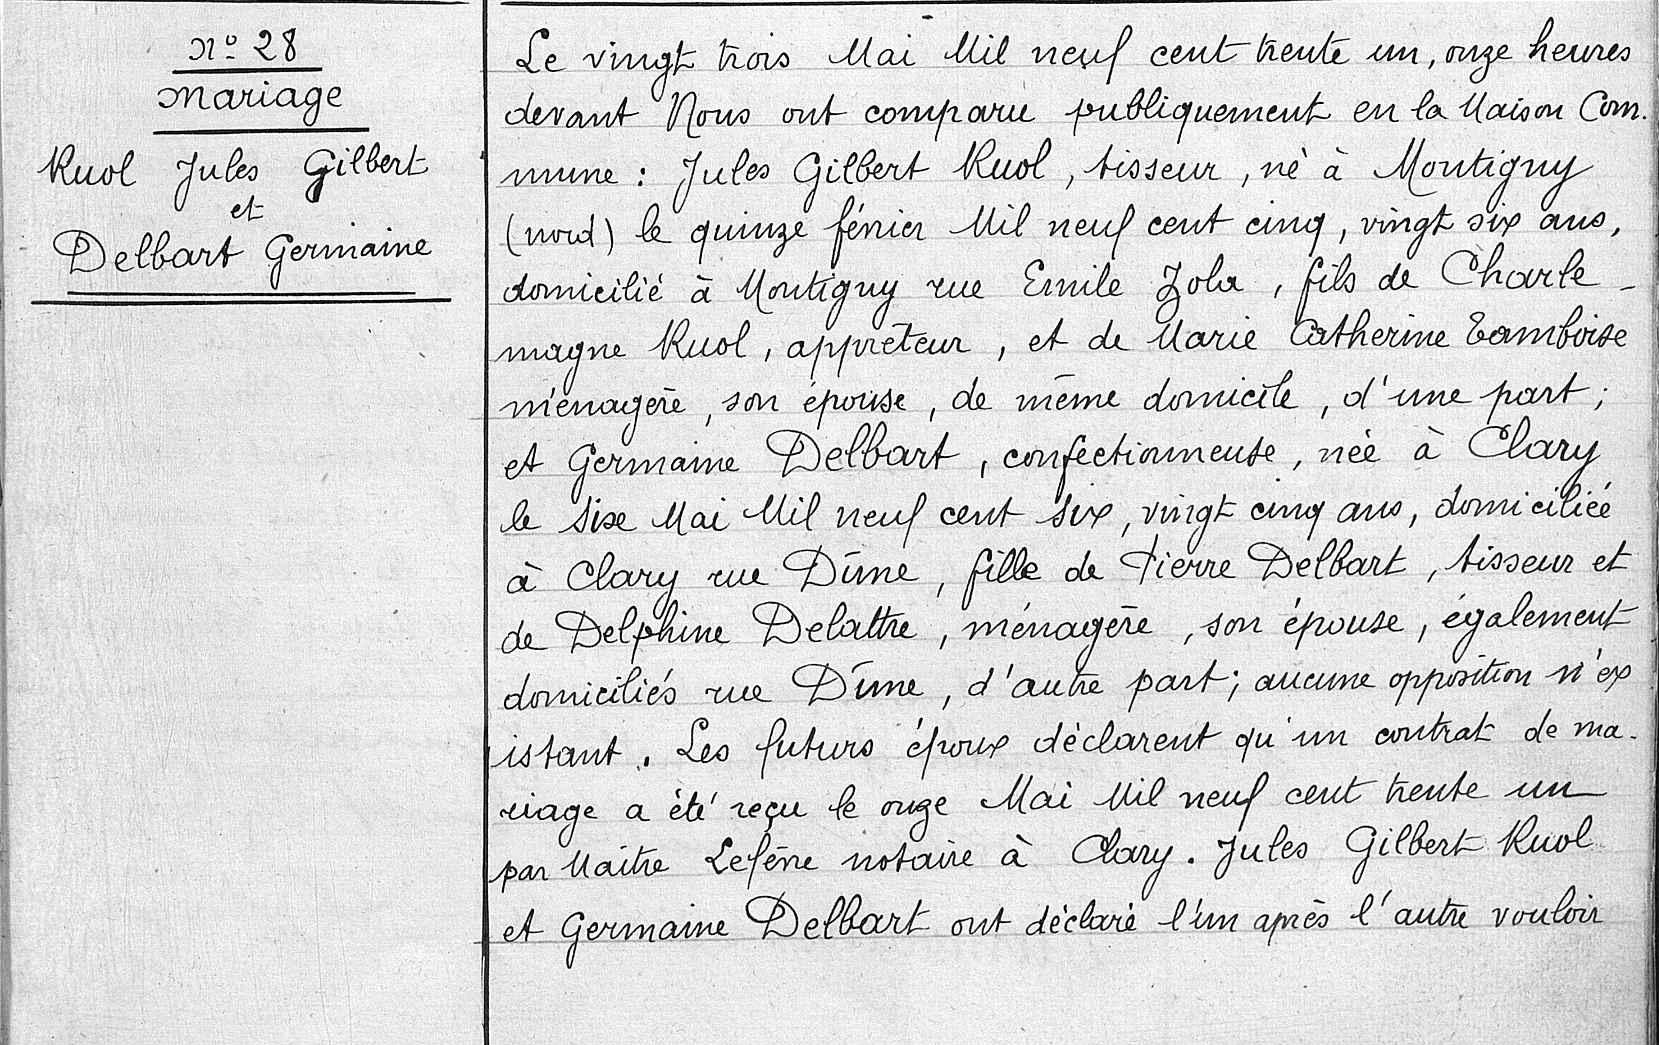 N° 28
Mariage
Ruol Jules Gilbert
et
Delbart Germaine
Le vingt trois Mai Mil neuf cent trente un, onze heures
devant Nous ont comparu publiquement en la Maison Com.
mune : Jules Gilbert Ruol, tisseur, né à Montigny
(nord) le quinze février Mil neuf cent cinq, vingt six ans,
domicilié à Montigny rue Emile Zola, fils de Charle-
magne Ruol, appréteur, et de Marie Catherine Tamboise
ménagère, son épouse, de même domicile, d'une part ;
et Germaine Delbart, confectionneuse, née à Clary
le six Mai Mil neuf cent six, vingt cinq ans, domiciliée
à Clary rue Dîme, fille de Pierre Delbart, tisseur et
de Delphine Delattre, ménagère, son épouse, également
domiciliés rue Dîme, d'autre part ; aucune opposition n'ex
istant. Les futurs époux déclarent qu'un contrat de ma-
riage a été reçu le onze Mai Mil neuf cent trente un
par Maître Lefévre notaire à Clary. Jules Gilbert Ruol
et Germaine Delbart ont déclaré l'un après l'autre vouloir